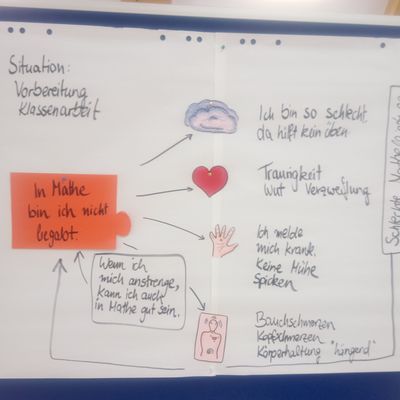 Situation:
Vorbereitung
Klassenarbeit
In Mathe
bin ich nicht
begabt.
Ich bin so schlecht
da hilft kein üben
Traurigkeit
Wut Verzweiflung
Ich melde
mich krank.
Keine Mühe
Spicken
Wenn ich
mich anstrenge,
kann ich auch
in Mathe gut sein.
Bauchschmerzen
Kopfschmerzen
Körperhaltung "hängend"
Schlechte